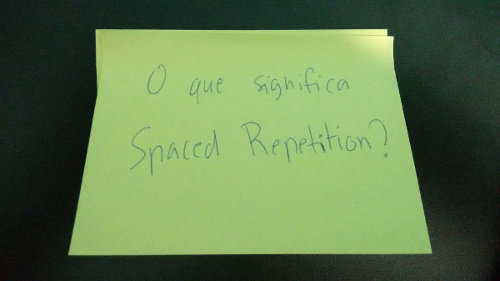 O que significa
Spaced Repetition?